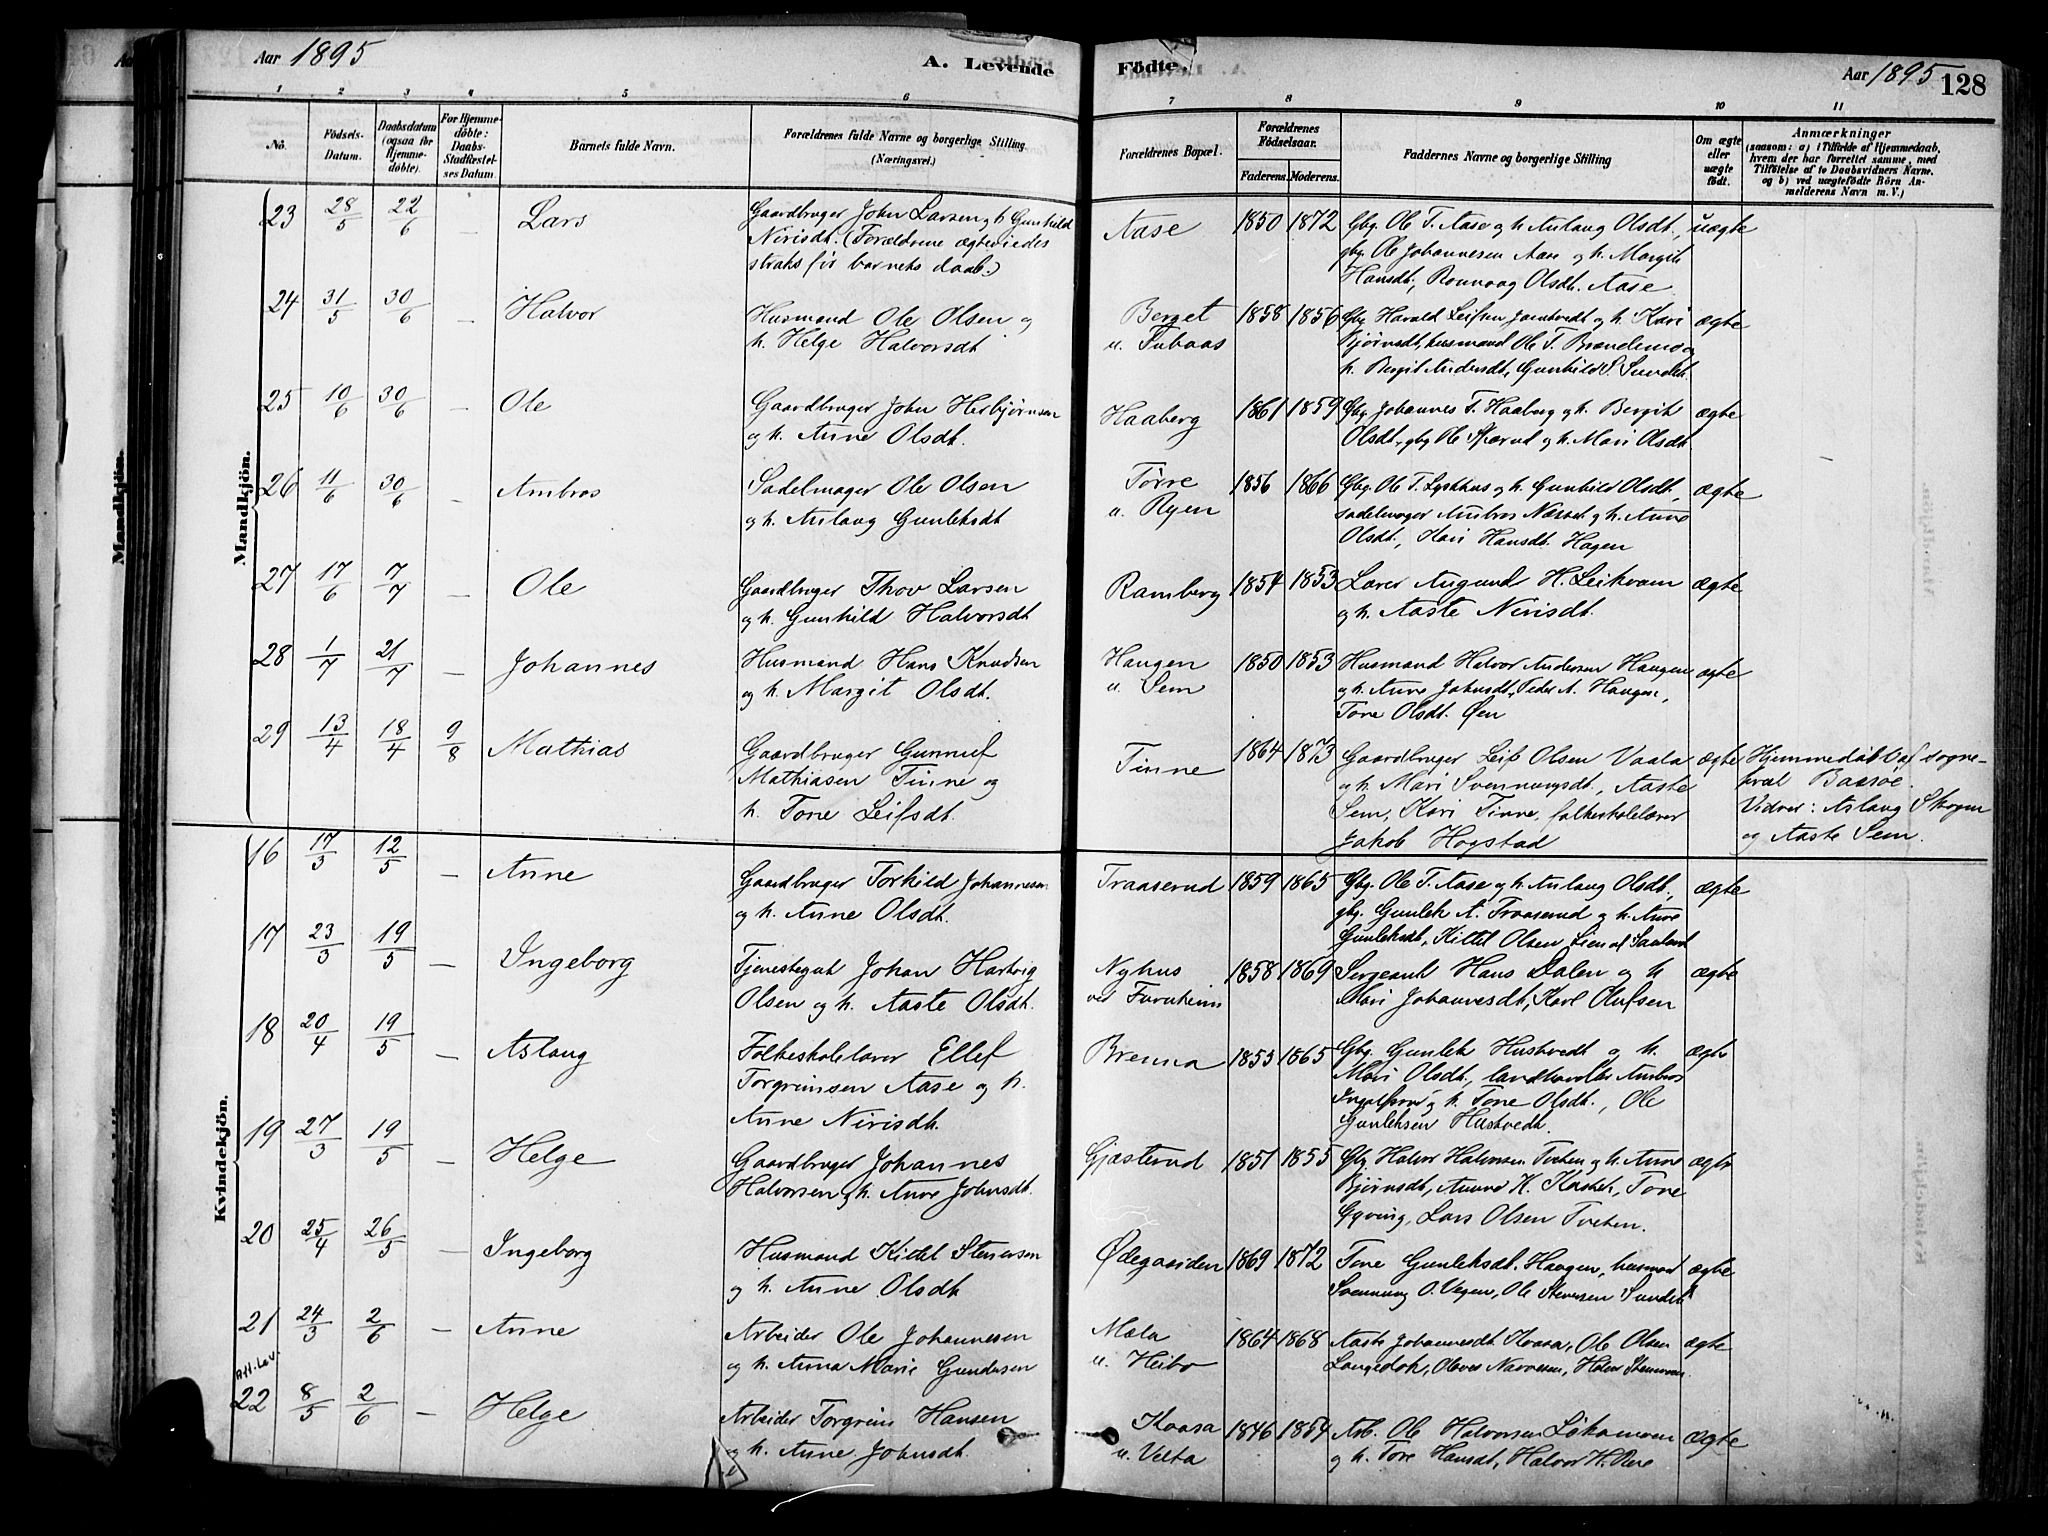 Aar 1895
A. Levende
Födte.
Aar 1895
128
1 2 3 4 5 6 7 8 9 10 11
No.
Födsels-Datum.
Daabsdatum (ogsaa for Hjemmedöbte).
For Hjemmedöbte: Daabs-Stadfæstelses Datum.
Barnets fulde Navn.
Forældrenes fulde Navne og borgerlige Stilling (Næringsvei.)
Forældrenes Bopæl.
Forældrenes Födselsaar.
Faderens. Moderens.
Faddernes Navne og borgerlige Stilling
Om ægte eller uægte födt.
Anmærkninger
(saasom: a) i Tilfælde af Hjemmedaab, hvem der har forrettet samme, med Tilföielse af to Daabsvidners Navne, og b) ved uægtefödte Börn Anmelderens Navn m. V.)
Mandkjön.
23 28/5 22/6 – Lars
Gaardbruger John Larsen og h. Gunhild
Nirisdt. (Forældrene ægteviedes
straks før barnets daab.)
Aase 1850 1872
Gbg. Ole T. Aase og h. Aslaug Olsdt.,
gbg. Ole Johannesen Aase og h. Margit
Hansdt., Rønnaug Olsdt. Aase
uægte
24 31/5 30/6 – Halvor
Husmand Ole Olsen og
h. Helge Halvorsdt
Berget
u. Tubaas
1858 1856
Gbg. Harald Leifsen Jernhvedt og h. Kari
Bjørnsdt, husmand Ole T. Brændemo og
h. Bergit Andersdt, Gunhild S. Sundet
ægte
25 10/6 30/6 – Ole
Gaardbruger John Herbjørnsen
og h. Anne Olsdt.
Haaberg 1861 1859
Gbg. Johannes T. Haaberg og h. Bergit
Olsdt., gbg. Ole Stærud og h. Mari Olsdt
ægte
26 11/6 30/6 – Ambros
Sadelmager Ole Olsen
og h. Aslaug Gunleksdt
Tørre
u. Ryen
1856 1866
Gbg. Ole T. Lyskhus og h. Gunhild Olsdt.,
sadelmager Ambros Næset og h. Anne
Olsdt., Kari Hansdt. Hagen
ægte
27 17/6 7/7 – Ole
Gaardbruger Thov Larsen
og h. Gunhild Halvorsdt
Ramberg 1854 1853
Lærer Augund H. Leikvam
og h. Aaste Nirisdt.
ægte
28 1/7 21/7 – Johannes
Husmand Hans Knudsen
og h. Margit Olsdt.
Haugen
u. Sem
1850 1853
Husmand Halvor Andersen Haugen
og h. Anne Johnsdt, Peder A. Haugen,
Tone Olsdt. Øen
ægte
29 13/4 18/4 9/8 Mathias
Gaardbruger Gunnuf
Mathiasen Tinne og
h. Tone Leifsdt.
Tinne 1864 1873
Gaardbruger Leif Olsen Vaala
og h. Mari Svennungsdt., Aaste
Sem, Kari Tinne, folkeskolelærer
Jakob Hogstad
ægte
Hjemmedøbt af sogne-
præst Baasøe.
Vidner: Aslaug Skogen
og Aaste Sem.
Kvindekjön.
16 17/3 12/5 – Anne
Gaardbruger Torkild Johannesen
og h. Anne Olsdt.
Traaserud 1859 1865
Gbg. Ole T. Aase og h. Aslaug Olsdt.,
gbg. Gunlek A. Traaserud og h. Anne
Gunleksdt, Kittel Olsen Lien af Sauland
ægte
17 23/3 19/5 – Ingeborg
Tjenestegut Johan Hartvig
Olsen og h. Aaste Olsdt.
Nyhus
ved Furuheim
1858 1869
Sergeant Hans Dalen og h
Mari Johannesdt, Karl Olufsen
ægte
18 20/4 19/5 – Aslaug
Folkeskolelærer Ellef
Torgrimsen Aase og h.
Anne Nirisdt.
Brenna 1855 1865
Gbg. Gunlek Hustvedt og h.
Mari Olsdt., landhandler Ambros
Ingolfsrud og h. Tone Olsdt., Ole
Gunleksen Hustvedt.
ægte
19 27/3 19/5 – Helge
Gaardbruger Johannes
Halvorsen og h. Anne Johnsdt.
Gjæsterud 1851 1855
Gbg. Halvor Halvorsen Tveten og h. Anne
Bjørnsdt, Anne H. Kaste, Tone
Gyving, Lars Olsen Tveten.
ægte
20 25/4 26/5 – Ingeborg
Husmand Kittel Stenersen
og h. Anne Olsdt
Ødegaarden 1869 1872
Tone Gunleksdt. Haugen, husmand
Svennung O. Vegen, Ole Stenersen Sundet
ægte
21 24/3 2/6 – Anne
Att. lev.
Arbeider Ole Johannesen
og h. Anna Marie Gundersen
Mæla
u. Heibø
1864 1868
Aaste Johannesdt. Kvasa, Ole Olsen
Langedok,
ægte
22 8/5 2/6 – Helge
Arbeider Torgrim Hansen
og h. Anne Johnsdt.
Kaasa
u. Velta
1846 1854
Arb. Ole Halvorsen Likamoen
og h. Tore Hansdt, Halvor H.
ægte